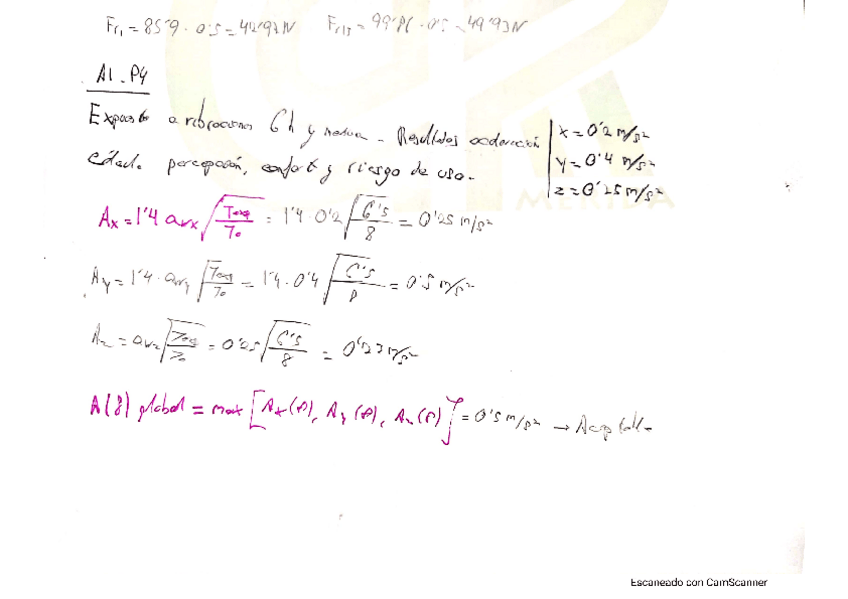 Fr₁ = 85'9 · 0'5 = 42'93 N Fr₁₃ = 99'86 · 0'5 = 49'93 N
A1 - P4
Expuesto a vibraciones 6 h y media - Resultados aceleración x = 0'2 m/s²
percepción, confort y riesgo de uso. y = 0'4 m/s²
z = 0'25 m/s²
Ax = 1'4 avx √(Texp/T₀) = 1'4 · 0'2 √(6'5/8) = 0'25 m/s²
Ay = 1'4 · avy √(Texp/T₀) = 1'4 · 0'4 √(6'5/8) = 0'5 m/s²
Az = avz √(Texp/T₀) = 0'25 √(6'5/8) = 0'23 m/s²
A(8) global = max [Ax(8), Ay(8), Az(8)] = 0'5 m/s² → Aceptable
MERIDA
Escaneado con CamScanner